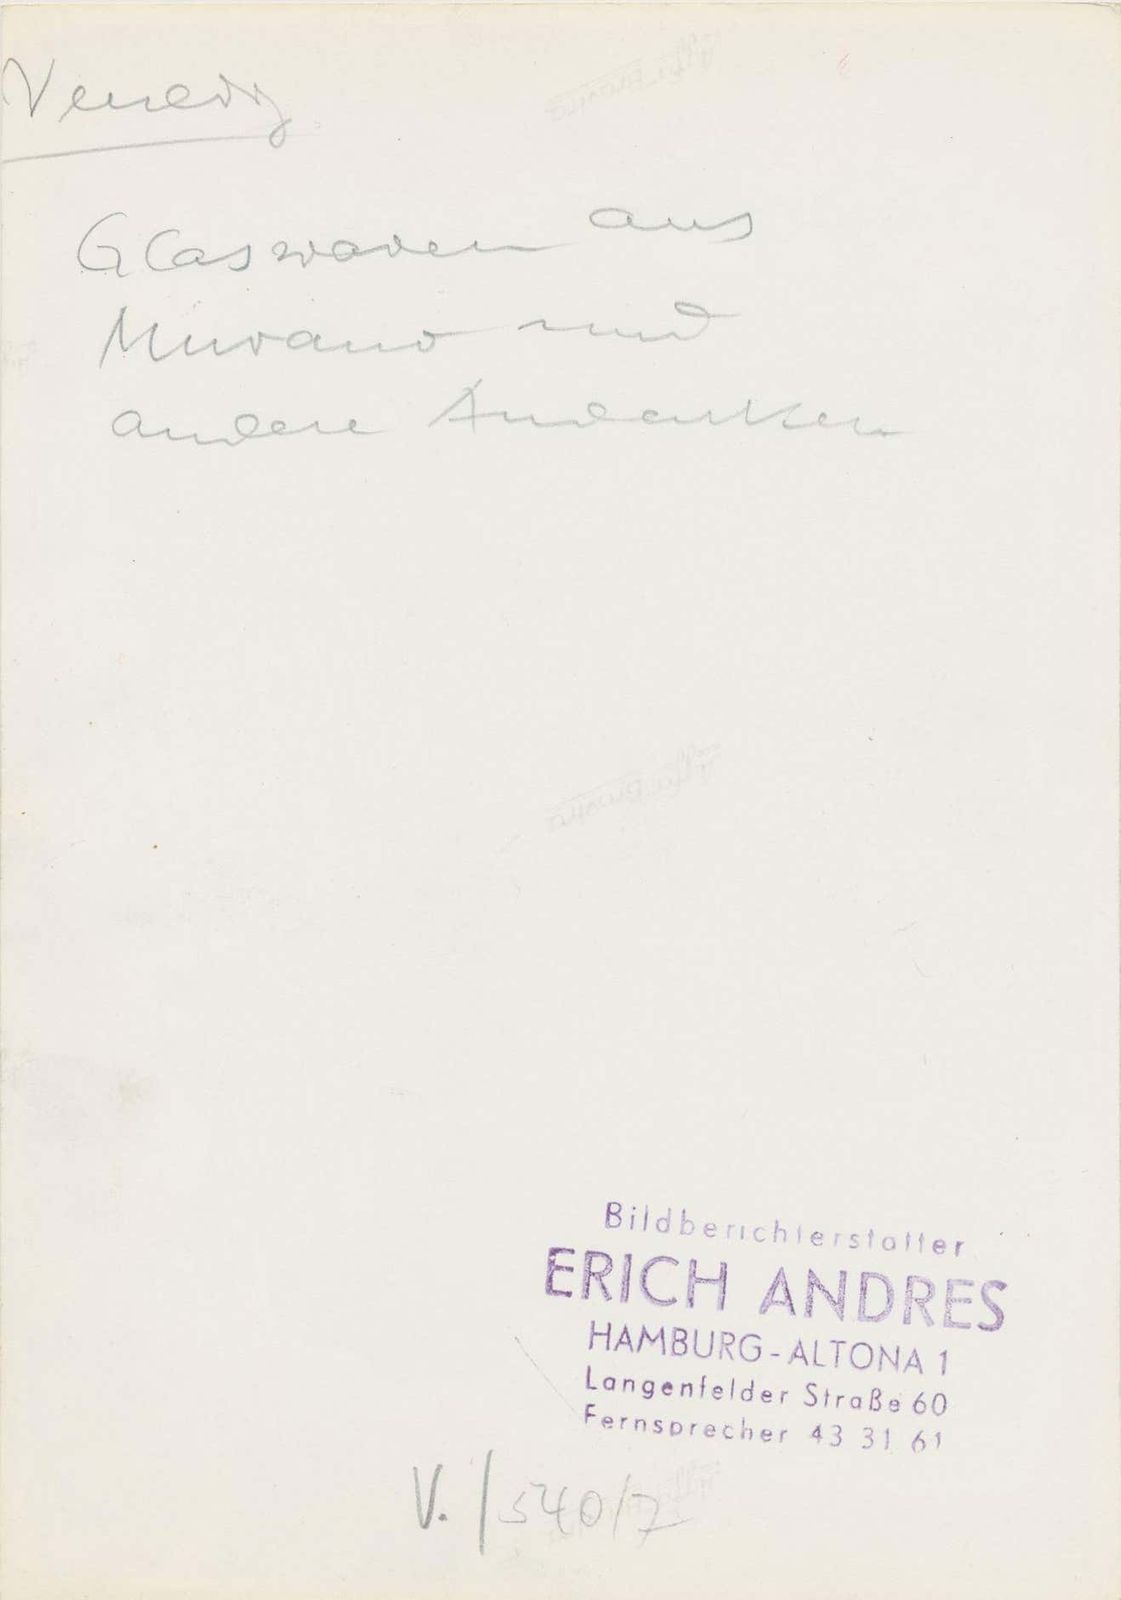 Venedig
Glaswaren aus
Murano und
andere Andenken
Bildberichterstatter
ERICH ANDRES
HAMBURG-ALTONA 1
Langenfelder Straße 60
Fernsprecher 43 31 61
V. / 540/7